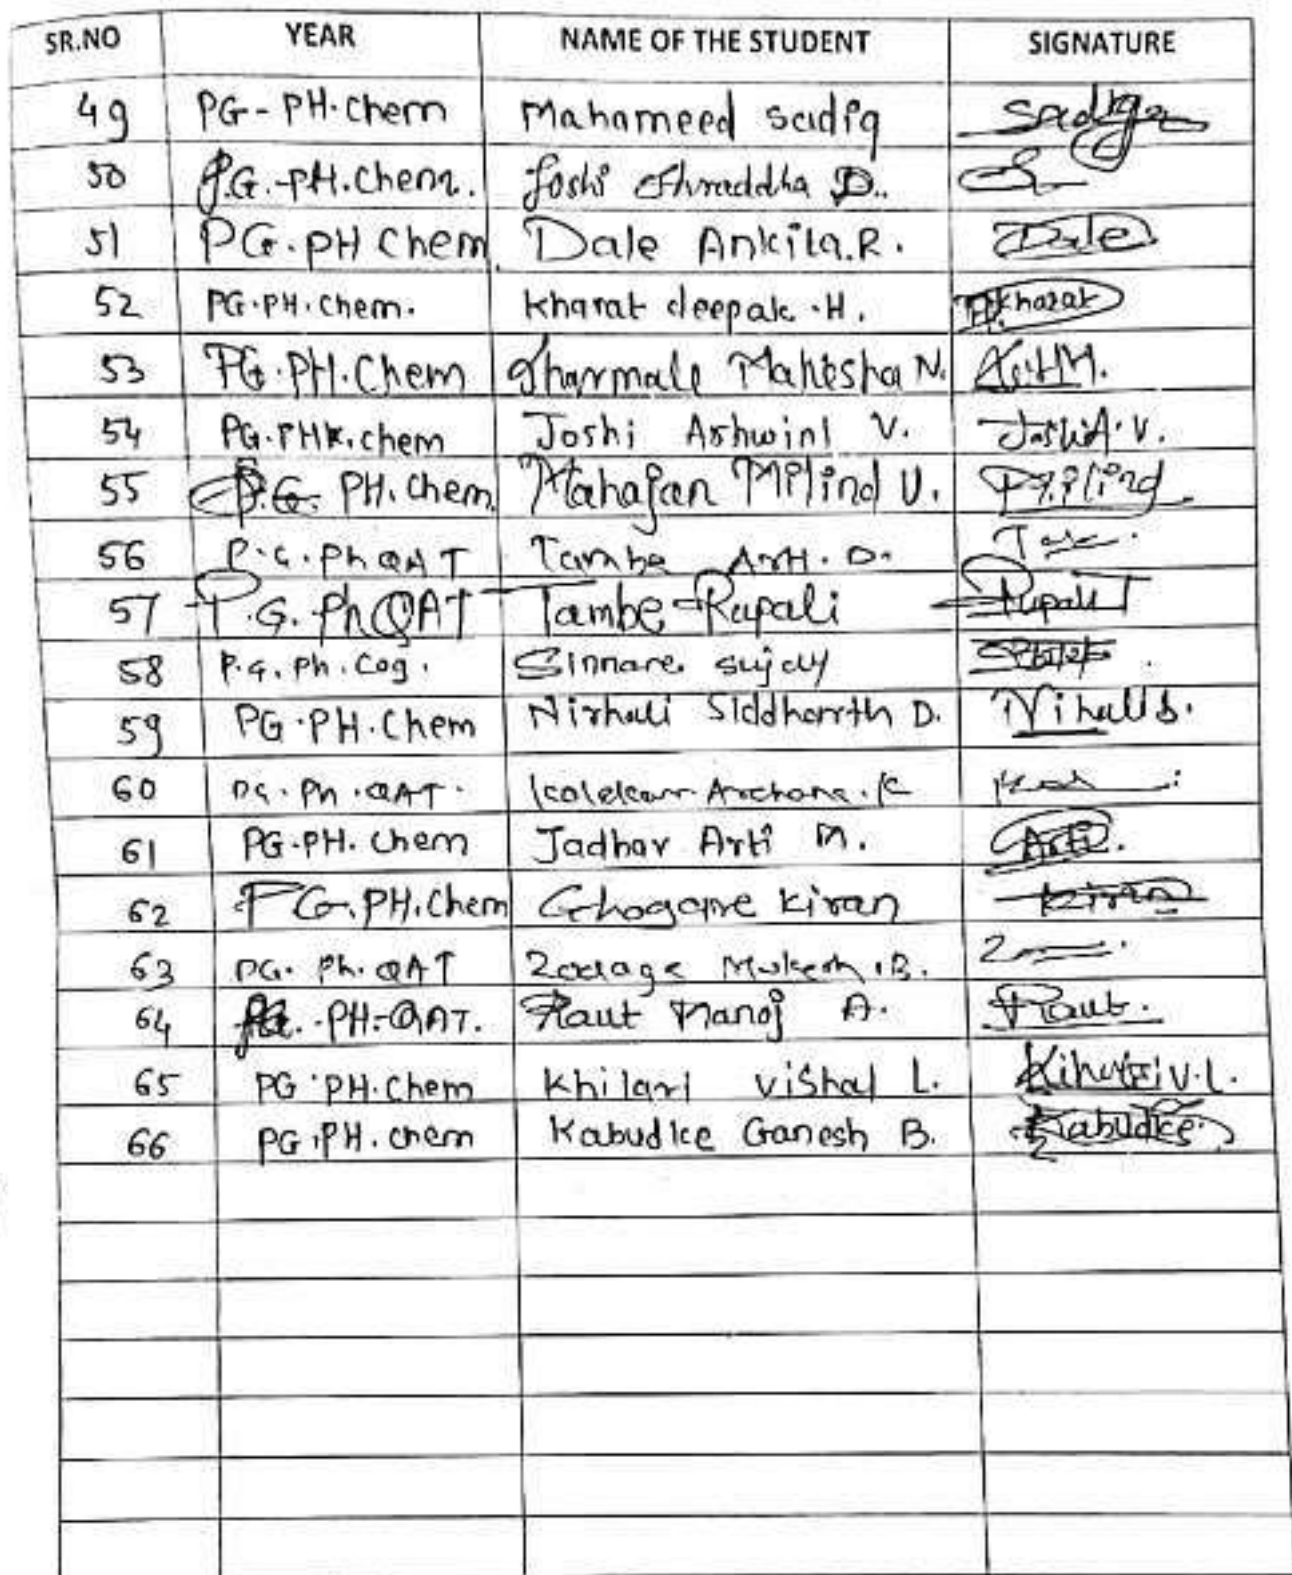 SR.NO YEAR NAME OF THE STUDENT SIGNATURE
49 PG-PH.Chem Mahameed sadiq Sadiq
50 P.G.-PH.Chem. Joshi Shraddha D.
51 PG.PH Chem Dale Ankita.R. Dale
52 PG.PH.Chem. Kharat deepak.H. Kharat
53 PG.PH.Chem Kharmale Mahesha N.
54 PG.PHK.chem Joshi Ashwini V. Joshi A.V.
55 P.G. PH.Chem Mahajan Milind U. Milind
56 P.G.Ph QAT Tambe D.
57 P.G.Ph QAT Tambe Rupali Rupali T
58 P.G.Ph.Cog. Sinnare sujay
59 PG.PH.Chem Nirhali Siddharrth D. Nihali S.
60 PG.Ph.QAT. Kalekar Archana.K
61 PG-PH.Chem Jadhav Arti M. Arti.
62 PG.PH.Chem Ghogare kiran kiran
63 PG.Ph.QAT Zaarage Mukesh.B.
64 PG.-PH-QAT. Raut Manoj A. Raut.
65 PG.PH.Chem Khilari Vishal L. V.L.
66 PG.PH.chem Kabudke Ganesh B. Kabudke